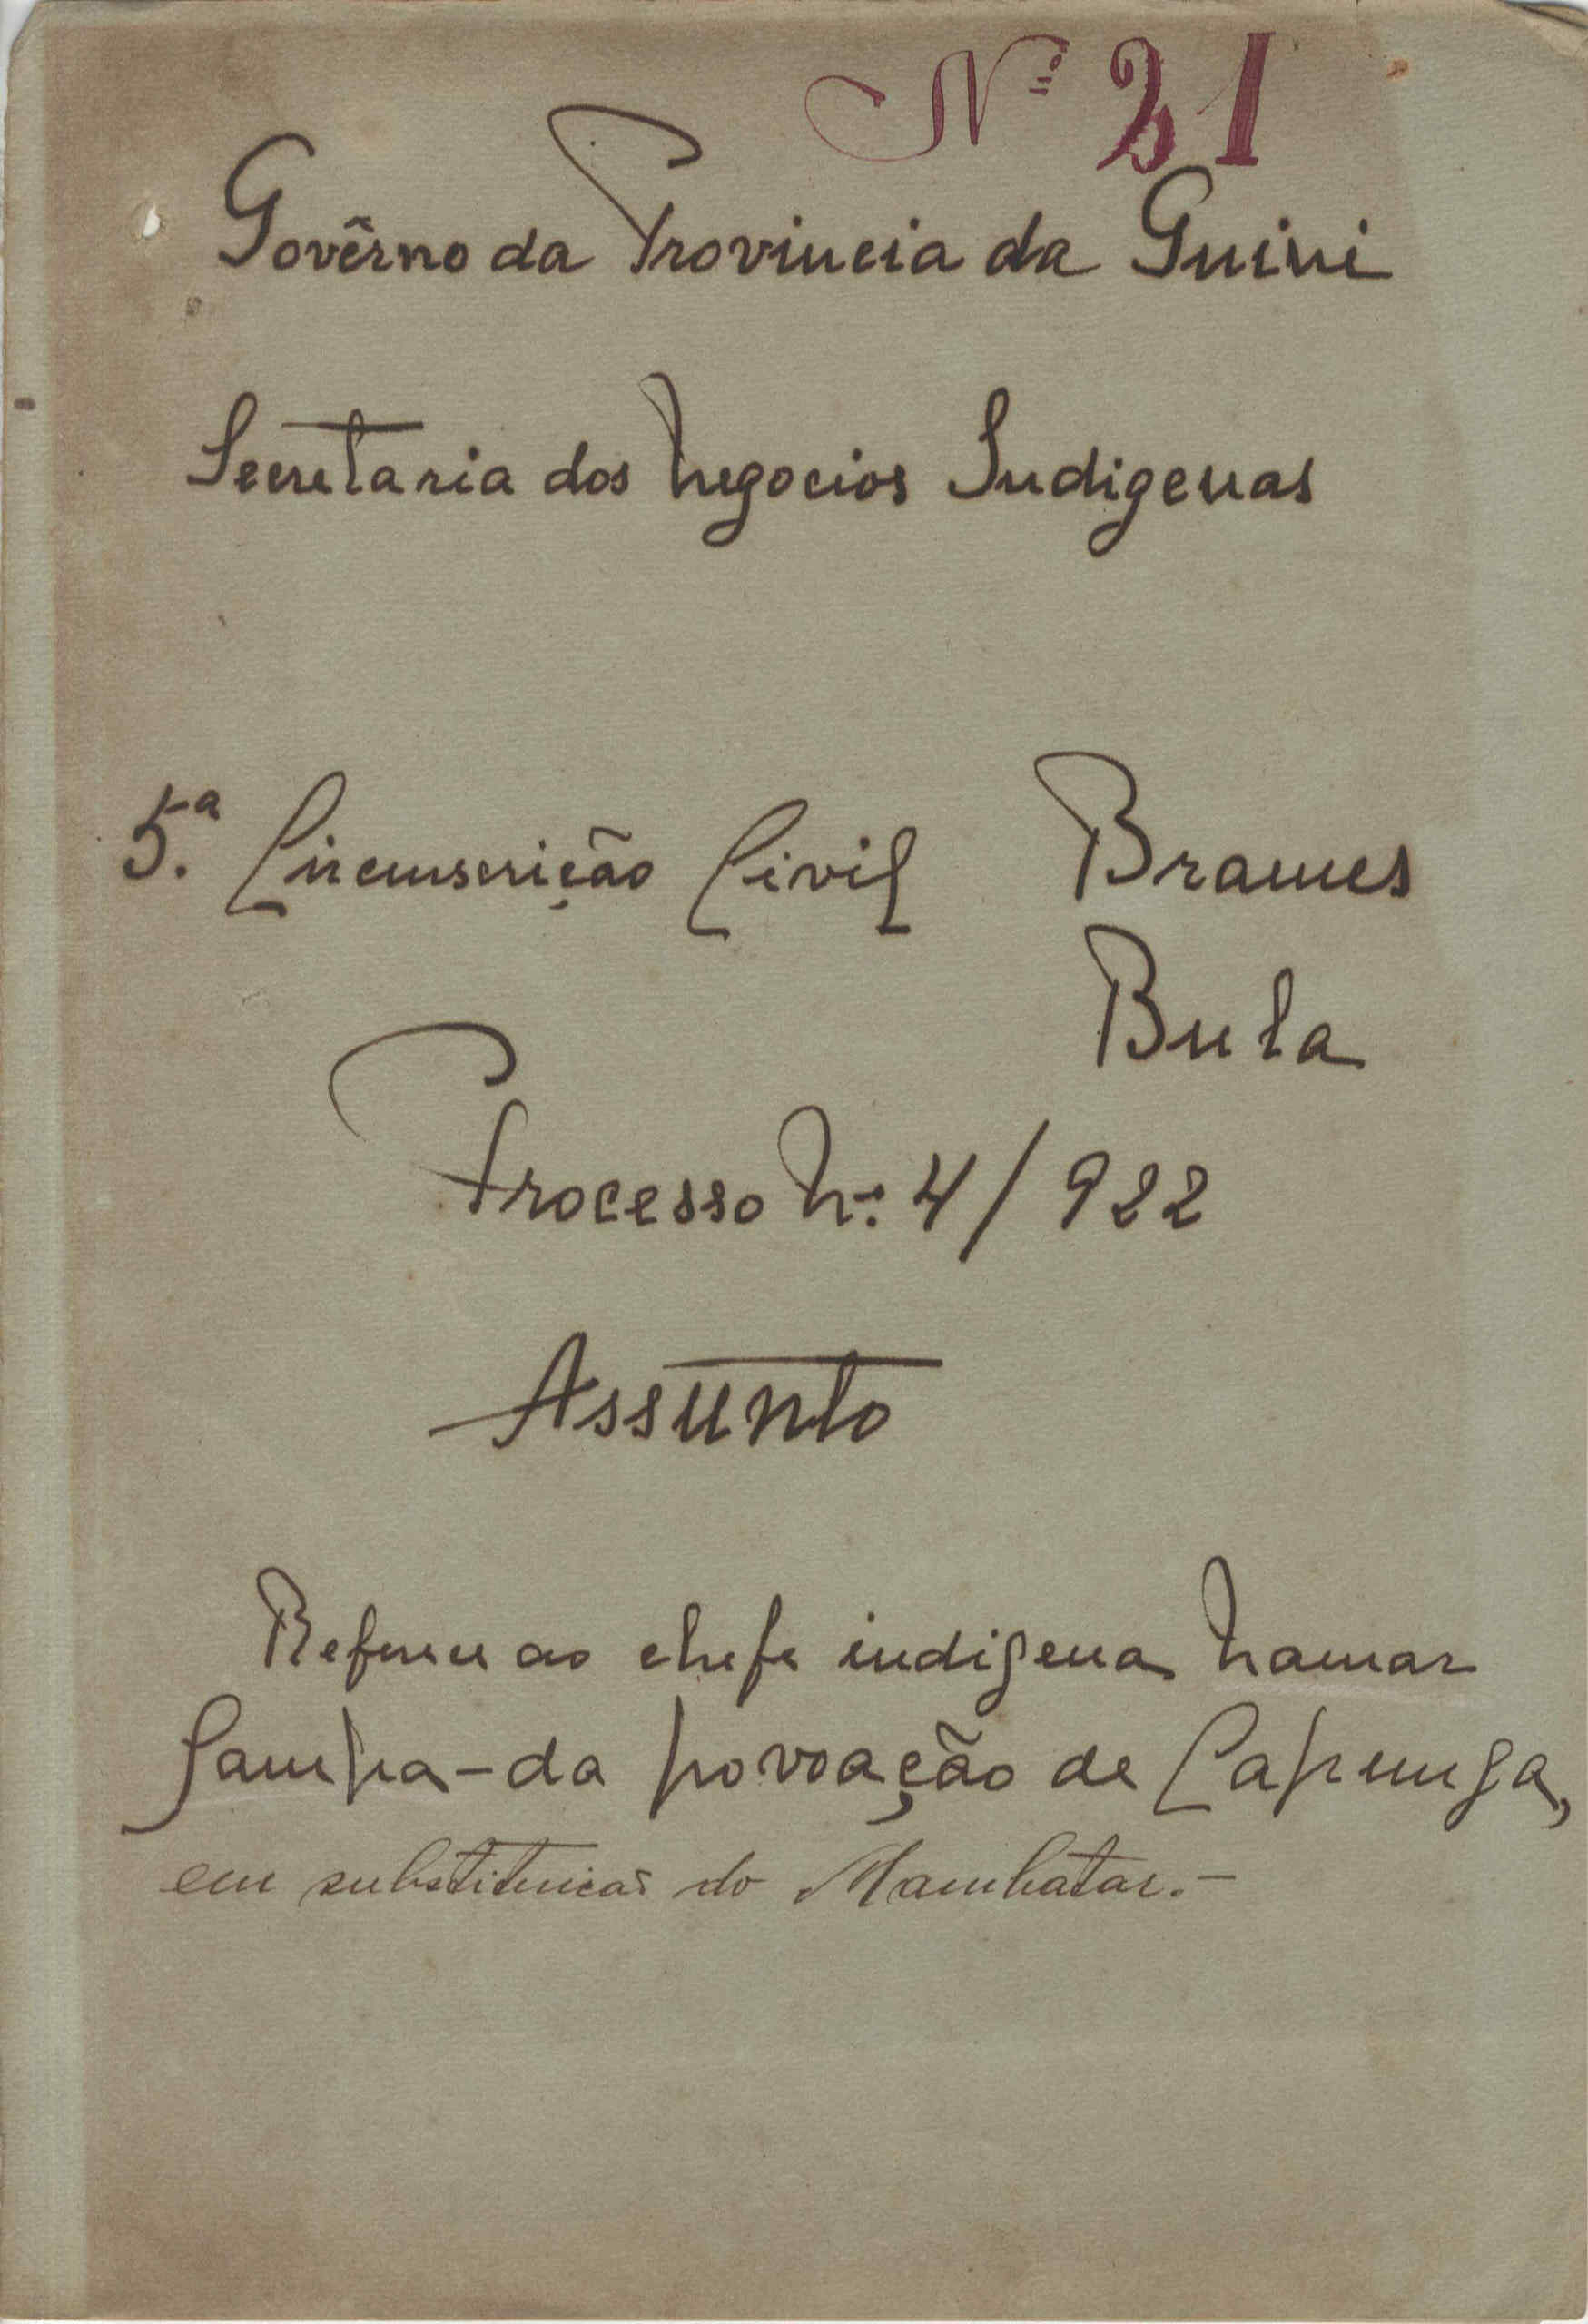 Nº 21
Govêrno da Provincia da Guiné
Secretaria dos Negocios Indigenas
5.ª Circunscrição Civil Brames
Bula
Processo Nº 4/922
Assunto
Refere ao chefe indigena Namar
Sampa - da povoação de Capunga,
em substituicão do Mambatar.-